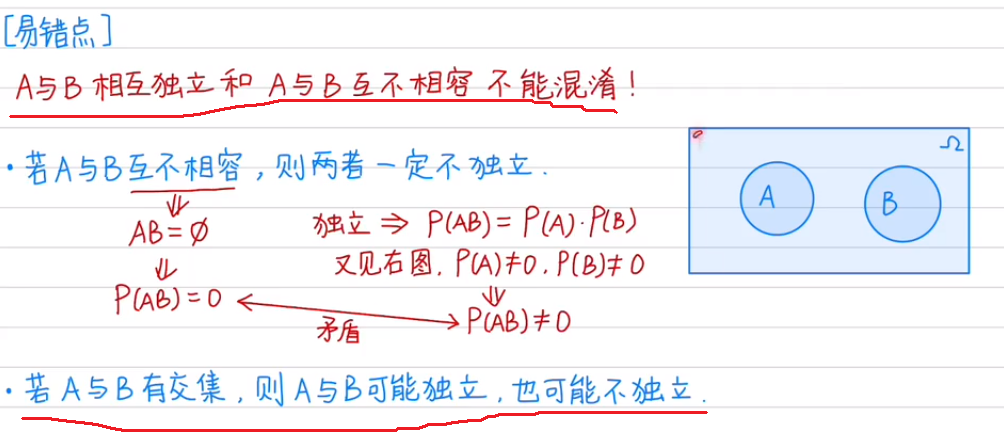 [易错点]
A与B 相互独立和 A与B 互不相容 不能混淆!
Ω
·若A与B互不相容,则两者一定不独立.
A
B
⇓
AB=∅
独立 ⇒ P(AB)=P(A)·P(B)
⇓
又见右图, P(A)≠0, P(B)≠0
P(AB)=0
⇓
矛盾
P(AB)≠0
·若A与B有交集,则A与B可能独立,也可能不独立.